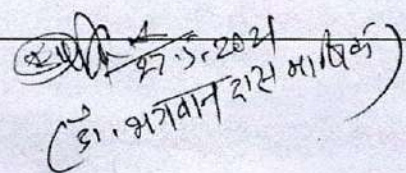 27.5.2021
(डॉ. भगवान दास माणिक)